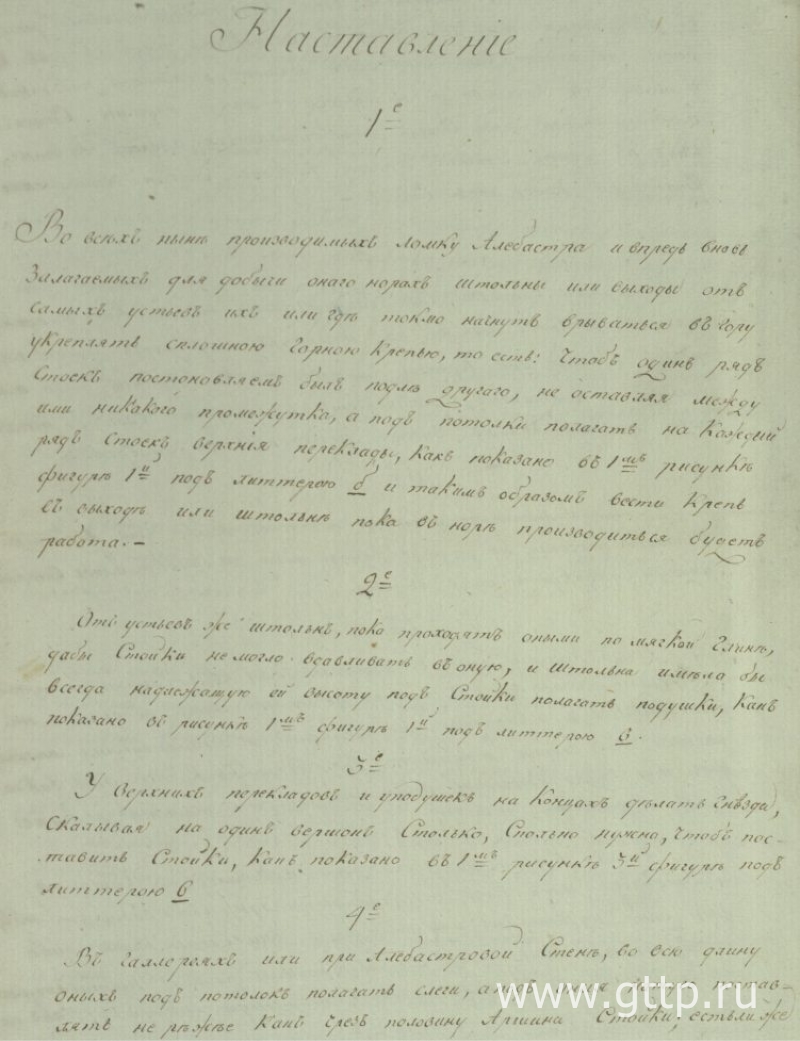 Наставленіе
1е
Во всѣхъ нынѣ производимыхъ ломку Алебастра и впредь вновь
Залагаемыхъ для добычи онаго норахъ штольны или выходы отъ
самыхъ устьевъ ихъ или гдѣ токмо начнутъ врываться въ гору
укреплять сплошною горною крепью, то есть: Чтобъ одинъ рядъ
Стоекъ постановляемъ былъ подлѣ другаго, не оставляя между
ими никакого промежутка, а подъ потолки полагать на Каждый
рядъ Стоекъ верхнія переклады, какъ показано въ 1мъ рисункѣ
фигурѣ 1й подъ литтерою б и такимъ образомъ вести крепь
въ выходѣ или штольнѣ пока въ норѣ производиться будетъ
работа. —
2е
Отъ устьевъ же штольнъ, пока проходятъ оными по мягкой Глинѣ,
дабы Стойки не могло вдавливать въ оную, и штольна имѣла бы
всегда надлежащую ей высоту подъ Стойки полагать подушки, Какъ
показано въ рисункѣ 1мъ фигурѣ 1й подъ литтерою в.
3е
У верхнихъ перекладовъ и уподушекъ на Концахъ дѣлать Гнѣзды,
Скалывая на одинъ вершокъ Столько, Сколько нужна, Чтобъ пос-
тавить Стойки, Какъ показано въ 1мъ рисункѣ 3й фигурѣ подъ
литтерою б
4е
Въ галлереяхъ или при Алебастровой Стенѣ, во всю длину
оныхъ подъ потолокъ полагать слеги, а подъ
лять не рѣже Какъ Чрезъ половину Аршина Стойки; естьли же
www.gttp.ru